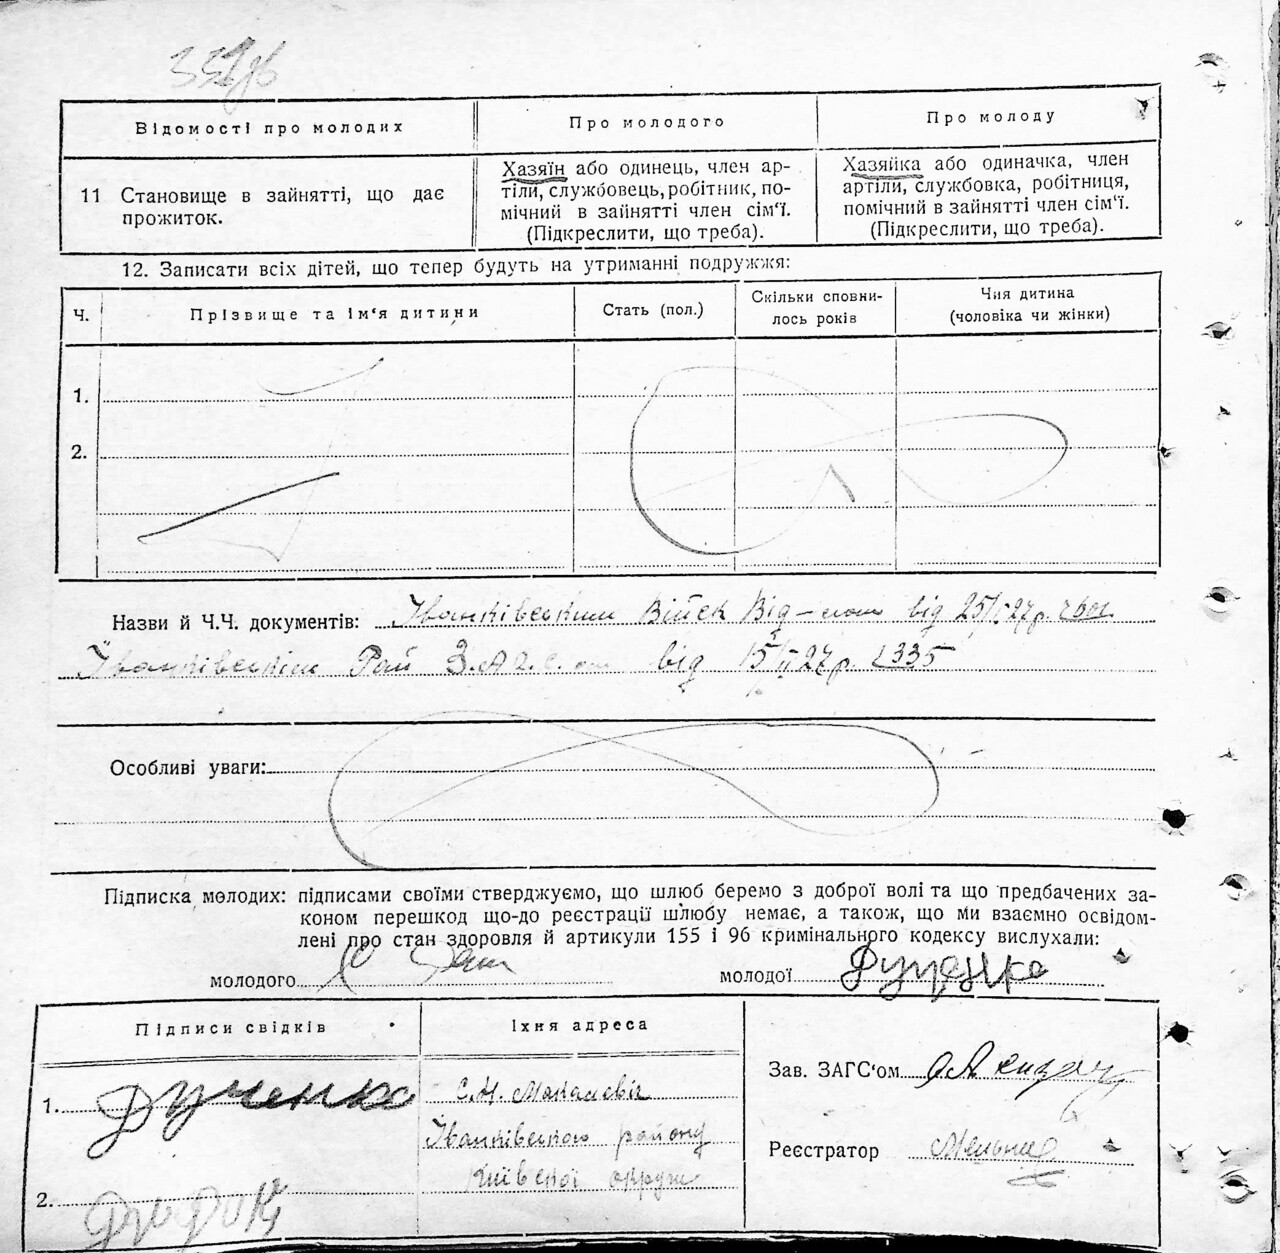 Відомості про молодих
Про молодого
Про молоду
11 Становище в зайнятті, що дає
прожиток.
Хазяїн або одинець, член ар-
тіли, службовець, робітник, по-
мічний в зайнятті член сім'ї.
(Підкреслити, що треба).
Хазяйка або одиначка, член
артіли, службовка, робітниця,
помічний в зайнятті член сім'ї.
(Підкреслити, що треба).
12. Записати всіх дітей, що тепер будуть на утриманні подружжя:
Ч.
Прізвище та ім'я дитини
Стать (пол.)
Скільки сповни-
лось років
Чия дитина
(чоловіка чи жінки)
1.
2.
Назви й Ч.Ч. документів: Іванківським Війск Від від 25/ 27р.
Іванківським Рай З.А.Г.С. від 15/II 27р. 335
Особливі уваги:
Підписка молодих: підписами своїми стверджуємо, що шлюб беремо з доброї волі та що предбачених за-
коном перешкод що-до реєстрації шлюбу немає, а також, що ми взаємно освідом-
лені про стан здоровля й артикули 155 і 96 кримінального кодексу вислухали:
молодого
молодої
Підписи свідків
Їхня адреса
1. Дученко
С.М.
Іванківського району
Київської округи
2.
Зав. ЗАГС'ом
Реєстратор